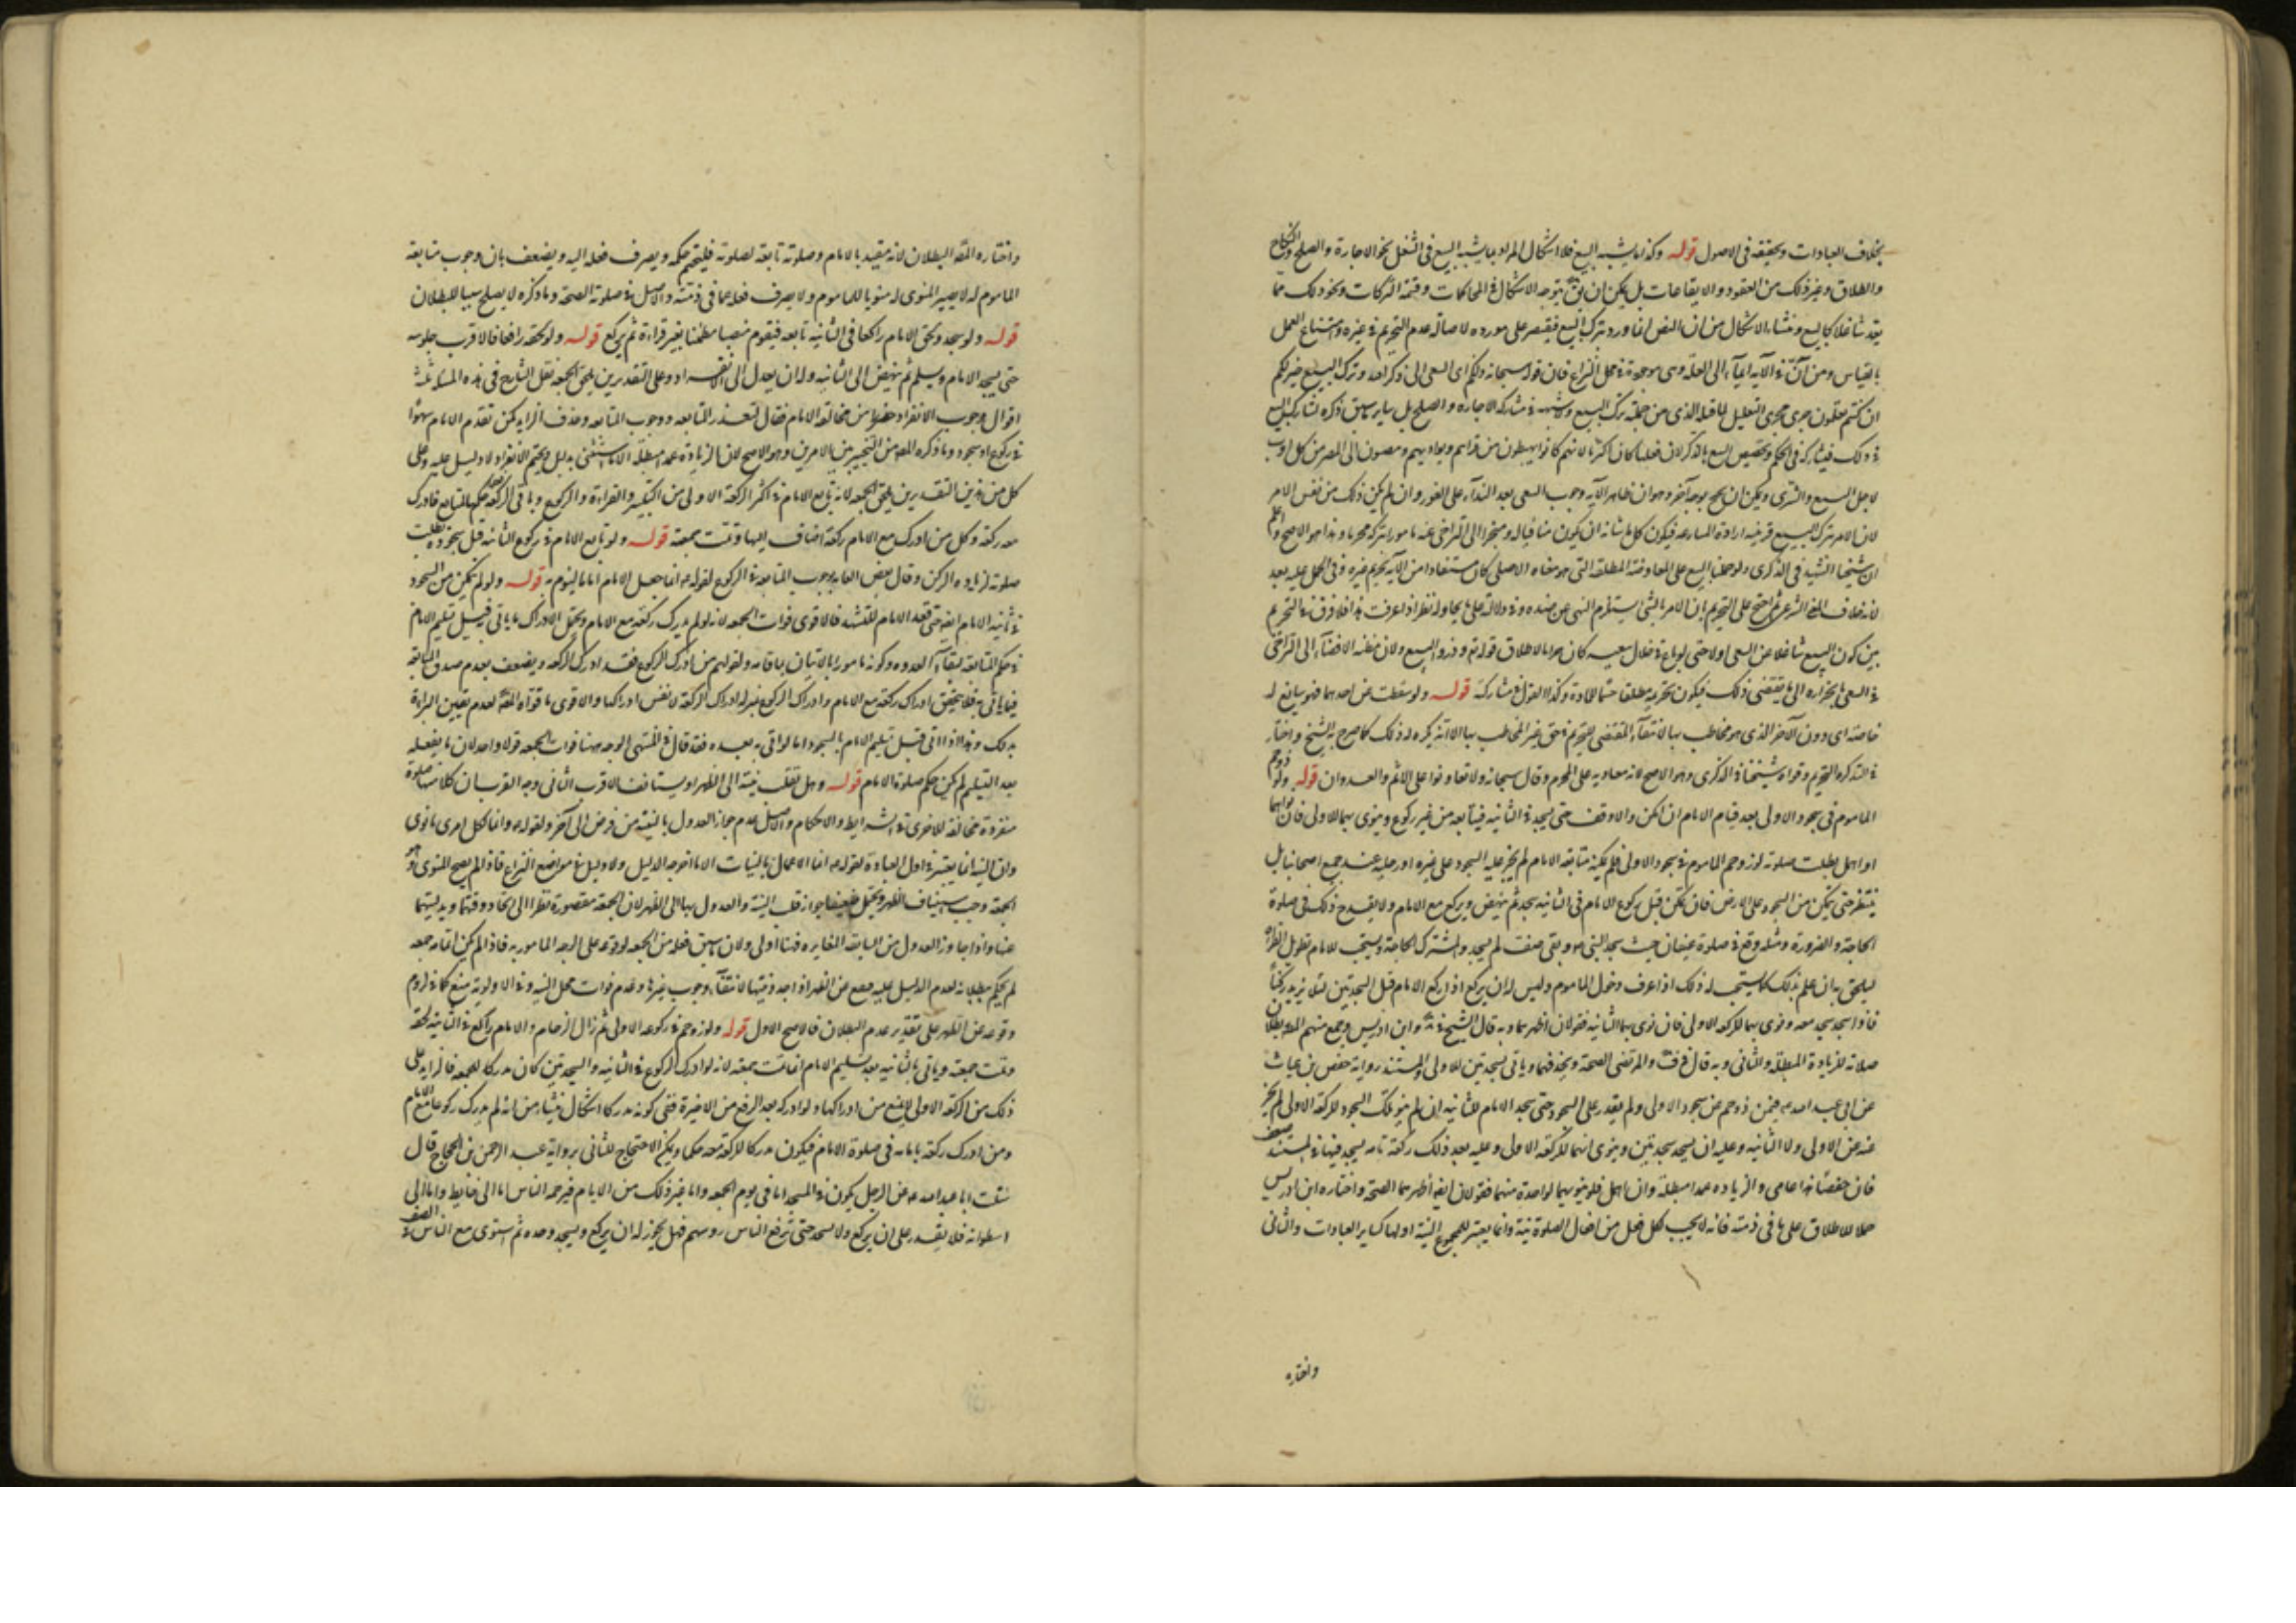 بخلاف العبادات وتحقيقه في الاصول قوله وكذا ما يشبه البيع فلا اشكال المراد بما يشبه البيع في الشغل نحو الاجارة والصلح والنكاح
والطلاق وغير ذلك من العقود والايقاعات بل يمكن ان يتوجه الاشكال في المحاكمات وقسمة التركات ونحو ذلك مما
يعد شاغلا كالبيع ومنشاء الاشكال من ان النص انما ورد بترك البيع فيقتصر على مورده لاصالة عدم التحريم في غيره وامتناع العمل
بالقياس ومن ان في الآية ايماء الى العلة وهى موجودة في محل النزاع فان قوله سبحانه ذلكم اى السعى الى ذكر الله وترك البيع خير لكم
ان كنتم تعلمون جرى مجرى التعليل لما قبله الذى من جملة ترك البيع وشبهه في مشاركة الاجارة والصلح بل ساير ما سبق ذكره تشارك البيع
في ذلك فيشاركه في الحكم وتخصيص البيع بالذكر لان فعله كان اكثر يا لانهم كانوا يهبطون من قراهم وبواديهم وينصبون الى المصر من كل اوب
لاجل البيع والشرى ويمكن ان يحتج بوجه آخر وهو ان ظاهر الآية وجوب السعى بعد النداء على الفور وان لم يكن ذلك من نفس الامر
لان الامر بترك البيع قرينة ارادة المسارعة فيكون كل ما شانه ان يكون منافيا له ومنجرا الى التراخى عنه مامورا بتركه محرما وهذا هو الاصح واعلم
ان شيخنا الشهيد في الذكرى ولو حملنا البيع على المعاوضة المطلقة التى هو معناه الاصلى كان مستفادا من الآية تحريم غيره وفي الحمل عليه بعد
لانه خلاف المعنى الشرعى ثم احتج على التحريم بان الامر بالشئ يستلزم النهى عن ضده وفي دلالته على ما يحاوله نظر اذا عرفت هذا فلا فرق في التحريم
بين كون البيع شاغلا عن السعى اولا حتى لو باع في خلال سعيه كان حراما لاطلاق قوله تع وذروا البيع ولان مظنة الافضاء الى التراخى
في السعى بانجراره الى ما يقتضى ذلك فيكون تحريمه مطلقا حسما للمادة وكذا القول في مشاركه قوله ولو سقطت عن احدهما فهو سايغ له
خاصة اى دون الآخر الذى هو مخاطب بها لانتفاء المقتضى للتحريم في حق غير المخاطب بها الا انه يكره له ذلك كما صرح به الشيخ واختار
في التذكرة التحريم وقواه شيخنا في الذكرى وهو الاصح لانه معاونة على المحرم وقال سبحانه ولا تعاونوا على الاثم والعدوان قوله ولو زوحم
الماموم في سجود الاولى بعد قيام الامام ان امكن والا وقف حتى يسجد في الثانية فيتابعه من غير ركوع وينوى بهما للاولى فان نواهما
او اهمل بطلت صلوته لو زوحم الماموم في سجود الاولى فلم يمكنه متابعة الامام لم يجز عليه السجود على ظهر غيره او رجليه عند جميع اصحابنا بل
ينتظر حتى يتمكن من السجود على الارض فان تمكن قبل ركوع الامام في الثانية سجد ثم نهض وركع مع الامام ولا يقدح ذلك في صلوة
الحاجة والضرورة ومثله وقع في صلوة عسفان حيث سجد النبى ص وبقى صف لم يسجد والمشترك الحاجة ويستحب للامام تطويل القراءة
ليلحق به ان علم بذلك كما يستحب له ذلك اذا عرف دخول الماموم وليس له ان يركع اذا ركع الامام قبل السجدتين لئلا يزيد ركنا
فاذا سجد سجد معه ونوى بهما للركعة الاولى فان نوى بهما الثانية فقولان اظهرهما وبه قال الشيخ في وابن ادريس وجمع منهم المص بطلان
صلاته للزيادة المبطلة والثانى وبه قال في ف والمرتضى الصحة ويحذفهما وياتى بسجدتين للاولى والمستند رواية حفص بن غياث
عن ابى عبد الله ع فيمن زوحم عن سجود الاولى ولم يقدر على السجود حتى سجد الامام للثانية ان لم ينو تلك السجود للركعة الاولى لم تجز
عنه عن الاولى ولا الثانية وعليه ان يسجد سجدتين وينوى انهما للركعة الاولى وعليه بعد ذلك ركعة تامه يسجد فيها وفي المستند ضعف
فان حفصا عامى والزيادة عمدا مبطلة وان اهمل فلم ينو بهما لواحدة منهما فقولان ايضا اظهرهما الصحة واختاره ابن ادريس
حملا للاطلاق على ما في ذمته فانه لا يجب لكل فعل من افعال الصلوة نية وانما يعتبر للمجموع النية اولها كساير العبادات والثانى
واختاره
واختاره المص البطلان لانه مقيد بالامام وصلوته تابعة لصلوته فيلحقهم حكمه ويصرف فعله اليه ويضعف بان وجوب متابعة
الماموم له لا يصير المنوى له منويا للماموم ولا يصرف فعله عما في ذمته والاصل في صلوته الصحة وما ذكره لا يصلح سببا للبطلان
قوله ولو سجد ولحق الامام راكعا في الثانية تابعه فيقوم منتصبا مطمئنا بغير قراءة ثم يركع قوله ولو لحقه رافعا فالاقرب جلوسه
حتى يسجد الامام ويسلم ثم ينهض الى الثانية وله ان يعدل الى الانفراد وعلى التقديرين يلحق الجمعه نقل الشارح في هذه المسئلة ثلثة
اقوال وجوب الانفراد حذرا من مخالفة الامام فقال لتعذر المتابعة ووجوب المتابعه وحذف الزايد كمن تقدم الامام سهوا
في ركوع او سجود وما ذكره المص من التخيير بين الامرين وهو الاصح لان الزيادة عمدا مبطلة الا ما استثنى بدليل وتحتم الانفراد لا دليل عليه وعلى
كل من هذين التقديرين يلحق الجمعه لانه تابع الامام في اكثر الركعة الاولى من التكبير والقراءة والركوع وباقى الركعة بعد حكم المتابع فادرك
معه ركعة وكل من ادرك مع الامام ركعة اضاف اليها وتمت جمعته قوله ولو تابع الامام في ركوع الثانية قبل سجوده بطلت
صلوته لزيادة الركن وقال بعض العامه بوجوب المتابعة في الركوع لقوله ع انما جعل الامام اماما ليؤتم به قوله ولو لم يتمكن من السجود
في ثانية الامام ايضا حتى قعد الامام للتشهد فالاقوى فوات الجمعه لانه لم يدرك ركعة مع الامام ويحتمل الادراك ما ياتى قبل تسليم الامام
في حكم المتابعة لبقاء القدوه وكونه مامورا بالاتيان بباقيه ولقولهم من ادرك الركوع فقد ادرك الركعه ويضعف بعدم صدق المتابعة
فيما ياتى به فلا يتحقق ادراك ركعة مع الامام وادراك الركوع بمنزلة ادراك الركعة لا نفس ادراكها والاقوى ما قواه المص لعدم تيقين البراءة
بذلك وهذا اذا اتى قبل تسليم الامام بالسجود اما لو اتى به بعده فقد قال في المنتهى الوجه ههنا فوات الجمعه قولا واحدا لان ما يفعله
بعد التسليم لم يكن في حكم صلوة الامام قوله وهل تقلب نيته الى الظهر او يستانف الاقرب الثانى وجه القرب ان كلا منهما صلوة
منفردة مخالفة للاخرى في الشرايط والاحكام والاصل عدم جواز العدول بالنية من فرض الى آخر ولقوله ع وانما لكل امرئ ما نوى
ولان النية انما يعتبر في اول العبادة لقوله ع انما الاعمال بالنيات الا ما اخرجه الدليل ولا دليل في موضع النزاع فاذا لم يصح المنوى وهو
الجمعه وجب استيناف الظهر ويحتمل ضعيفا جواز قلب النية والعدول بها الى الظهر لان الجمعة مقصورة نظرا الى اتحاد وقتهما وبدليتهما
عنها واذا جاز العدول من السابقة المغايرة فهنا اولى ولان ما سبق فعله من الجمعه لوقوعه على الوجه المامور به فاذا لم يمكن اتمامه جمعه
لم يحكم ببطلانه لعدم الدليل عليه فيصح عن الظهر اذ احد وقتيها لانتفاء وجوب غيرها وعدم فوات محل النية وفي الاولوية منع كما في لزوم
وقوعه عن الظهر على تقدير عدم البطلان فالاصح الاول قوله ولو زوحم في ركوعه الاولى ثم زال الزحام والامام راكع في الثانية لحقه
وتمت جمعته وياتى بالثانية بعد تسليم الامام انما تمت جمعته لانه لو ادرك الركوع في الثانية والسجدتين كان مدركا للجمعه فالزايد على
ذلك من الركعة الاولى لا يمنع من ادراكها ولو ادركه بعد الرفع من الاخيرة ففى كونه مدركا اشكال ينشاء من انه لم يدرك ركوعا مع الامام
ومن ادرك ركعة بامامه في صلوة الامام فيكون مدركا للركعة معه حكما ويمكن الاحتجاج للثانى برواية عبد الرحمن بن الحجاج قال
سئلت ابا عبد الله ع عن الرجل يكون في المسجد اما في يوم الجمعه واما غير ذلك من الايام فيزحمه الناس اما الى حايط واما الى
اسطوانة فلا يقدر على ان يركع ولا يسجد حتى رفع الناس روسهم فهل يجوز له ان يركع ويسجد وحده ثم يستوى مع الناس في الصف